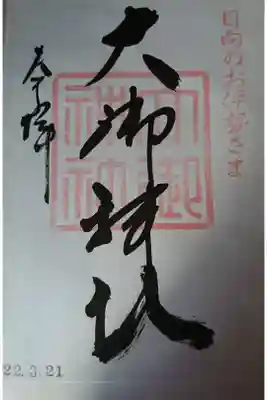 日向のお伊勢さま
大御神社
奉拝
22.3.21